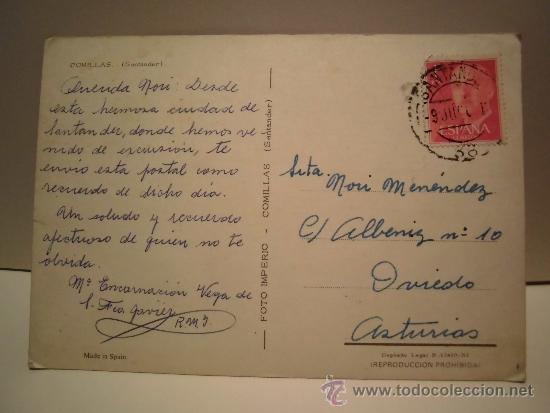 COMILLAS. (Santander)
Querida Nori: Desde
esta hermosa ciudad de
Santander, donde hemos ve
nido de excursión, te
envio esta postal como
recuerdo de dicho día.
Un saludo y recuerdo
afectuoso de quien no te
olvida.
Mª Encarnación Vega de
S. Fco Javier
R.M.I.
Made in Spain
FOTO IMPERIO - COMILLAS (Santander)
SANTANDER
ESPAÑA
Srta Nori Menéndez
C/ Albeniz nº 10
Oviedo
Asturias
Depósito Legal
(REPRODUCCION PROHIBIDA)
todocoleccion
www.todocoleccion.net